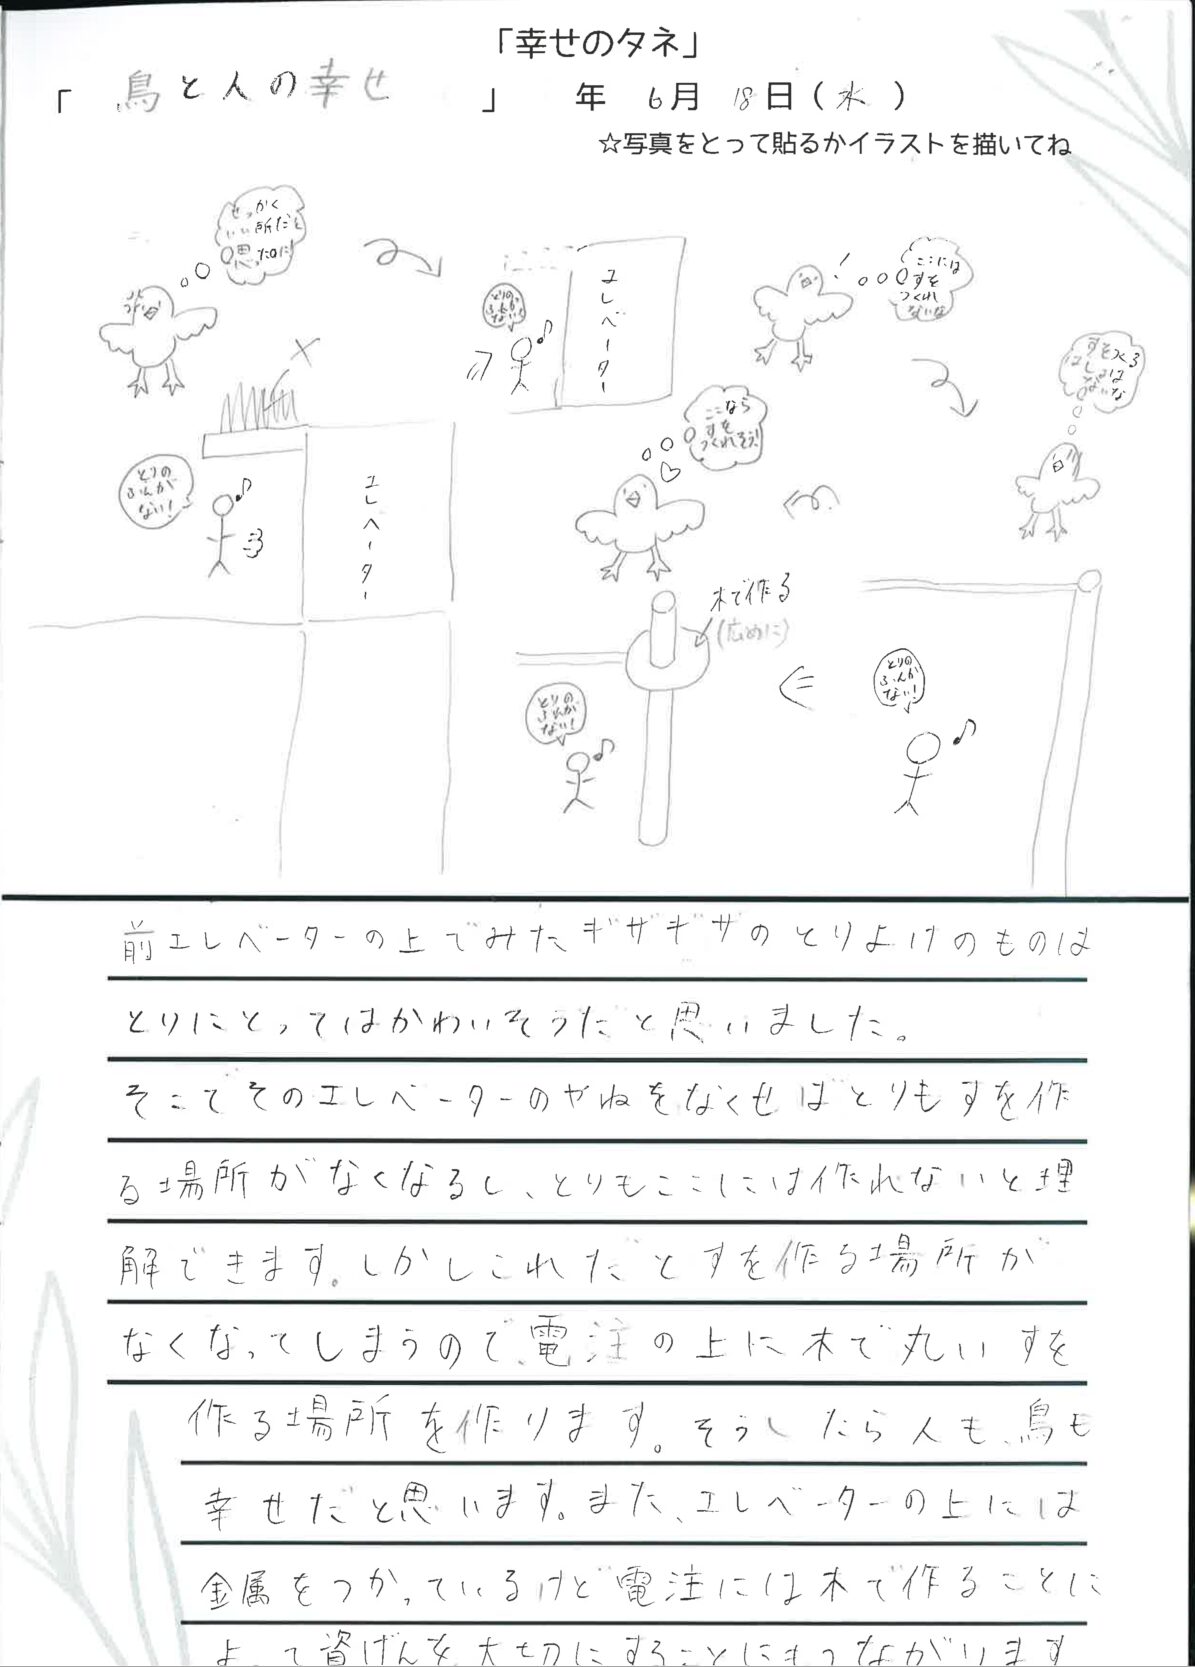 「幸せのタネ」
「 鳥と人の幸せ 」 年 6月 18日(水)
☆写真をとって貼るかイラストを描いてね
せっかく
いい所だと
思ったのに!
エレベーター
とりの
ふんが
ない!
ここには
すを
つくれ
ないな
すを
はしょは
ないな
×
とりの
ふんが
ない!
エレベーター
ここなら
すを
つくれそう!
木で作る
(広めに)
とりの
ふんが
ない!
とりの
ふんが
ない!
前エレベーターの上でみたギザギザのとりよけのものは
とりにとってはかわいそうだと思いました。
そこでそのエレベーターのやねをなくせばとりもすを作
る場所がなくなるし、とりもここには作れないと理
解できます。しかしこれだとすを作る場所が
なくなってしまうので、電注の上に木で丸いすを
作る場所を作ります。そうしたら人も、鳥も
幸せだと思います。また、エレベーターの上には
金属をつかっているけど電注には木で作ることに
よって資げんを大切にすることにもつながります